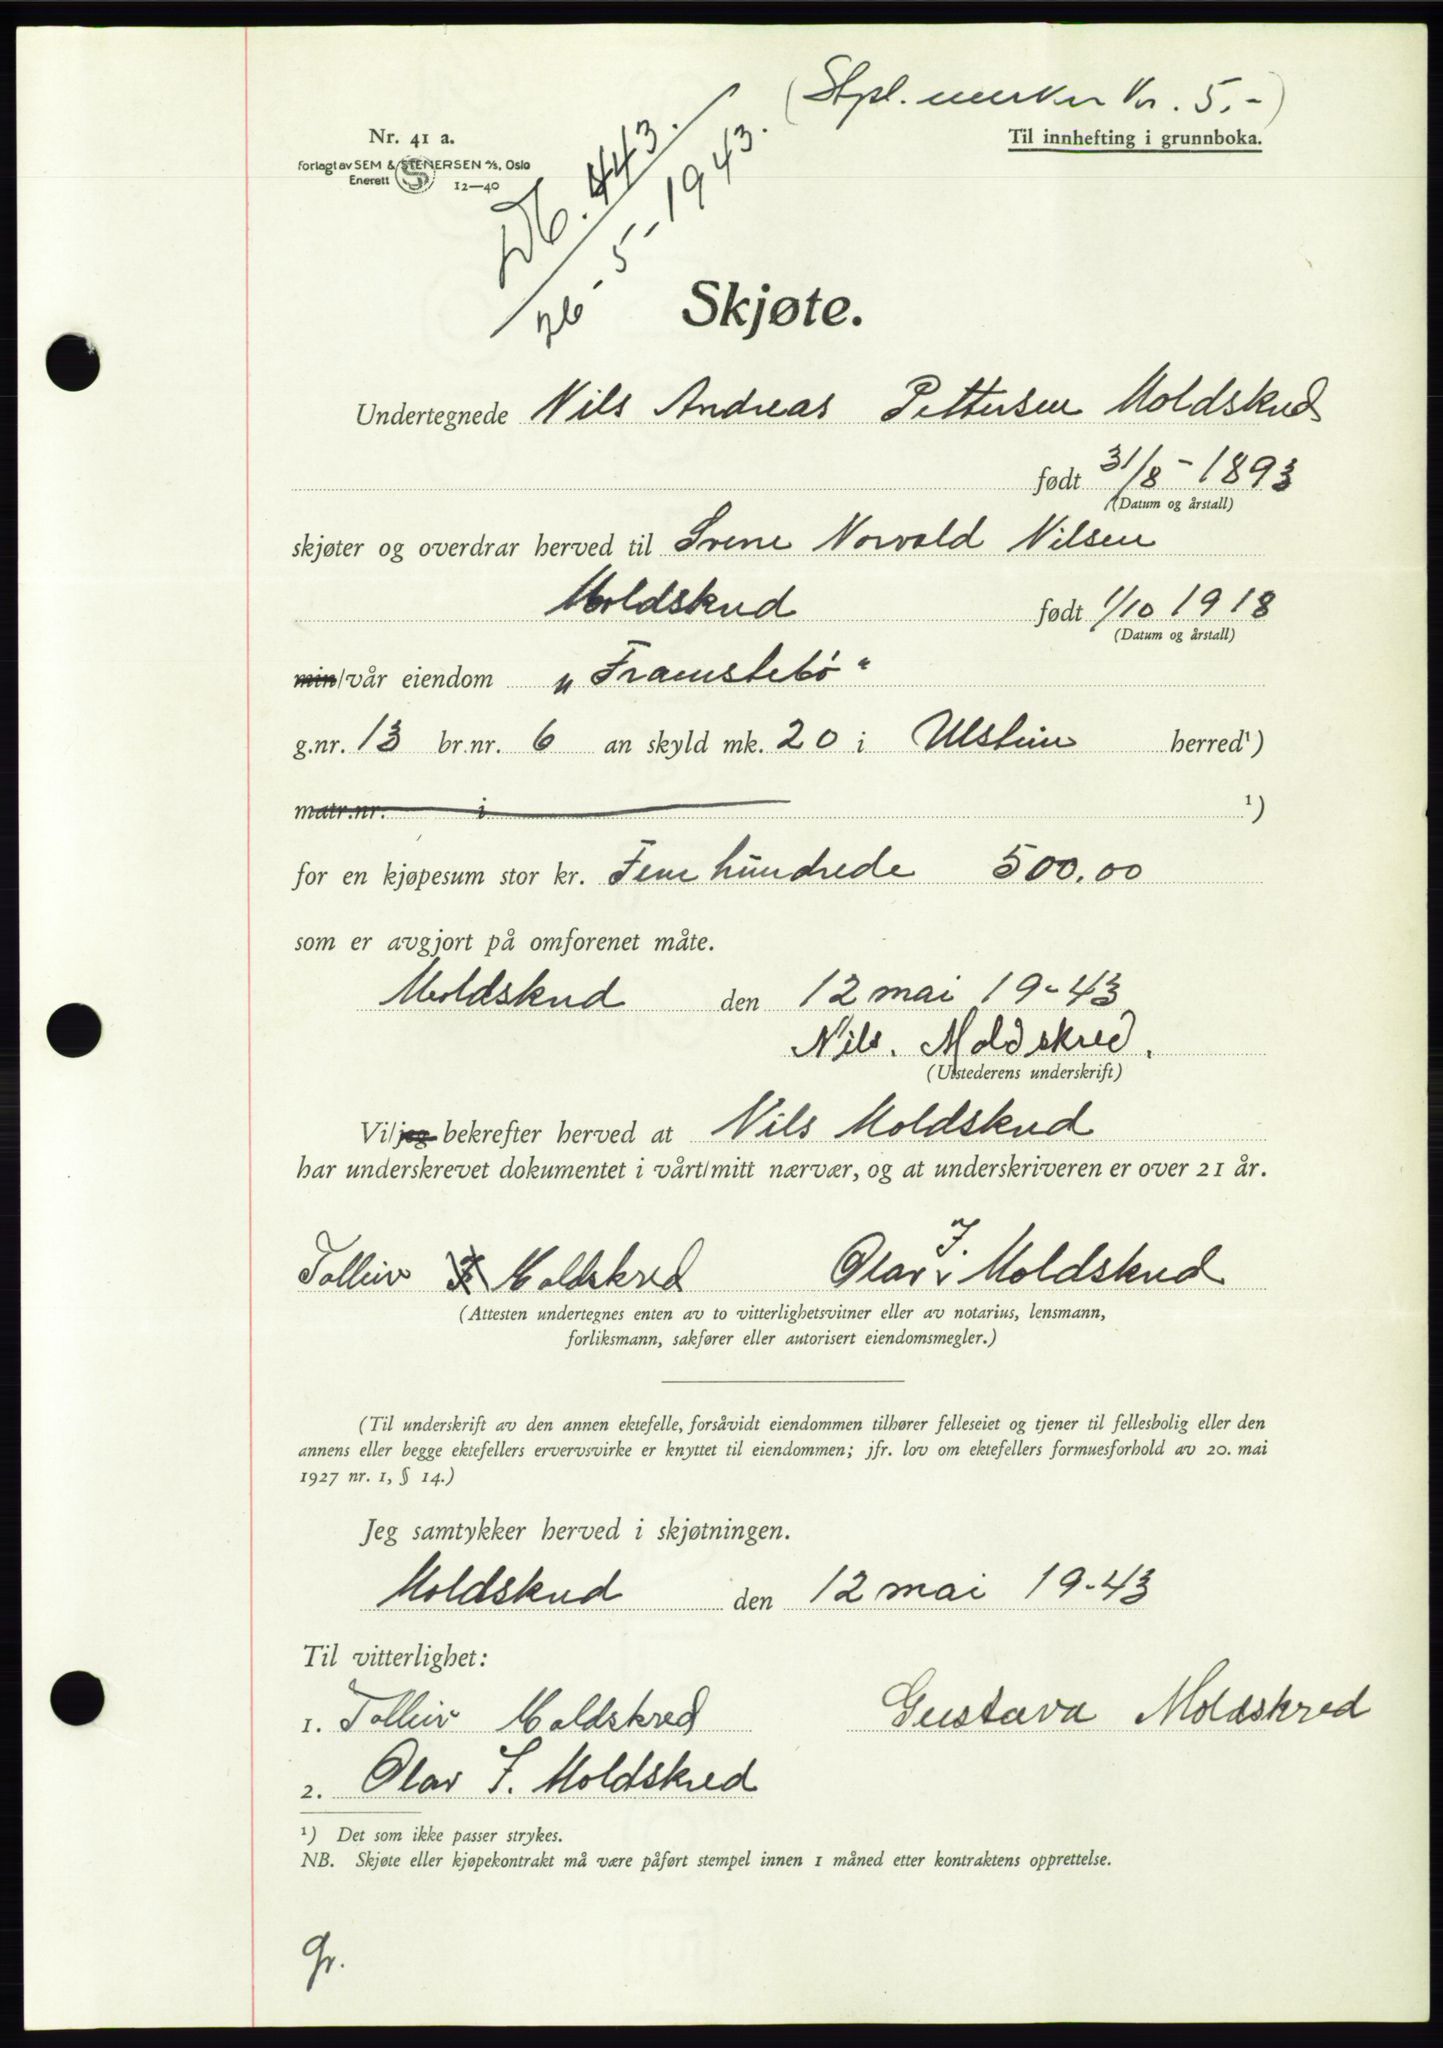 (Stpl. merker Kr. 5,-)
Nr. 41 a.
Til innhefting i grunnboka.
Forlagt av SEM & STENERSEN A/S, Oslo
Enerett S 12—40
Db. 443.
26-5-1943.
Skjøte.
Undertegnede Nils Andreas Pettersen Moldskred
født 31/8-1893
(Datum og årstall)
skjøter og overdrar herved til Svene Norvald Nilsen
Moldskred født 1/10 1918
(Datum og årstall)
min/vår eiendom „Framstebö“
g.nr. 13 br.nr. 6 an skyld mk. 20 i Ulstein herred¹)
matr.nr. i ¹)
for en kjøpesum stor kr. Fem hundrede 500.00
som er avgjort på omforenet måte.
Moldskred den 12 mai 19-43
Nils. Moldskred.
(Utstederens underskrift)
Vi/jeg bekrefter herved at Nils Moldskred
har underskrevet dokumentet i vårt/mitt nærvær, og at underskriveren er over 21 år.
Tolleiv Moldskred Olav J. Moldskred
(Attesten undertegnes enten av to vitterlighetsvitner eller av notarius, lensmann,
forliksmann, sakfører eller autorisert eiendomsmegler.)
(Til underskrift av den annen ektefelle, forsåvidt eiendommen tilhører felleseiet og tjener til fellesbolig eller den
annens eller begge ektefellers ervervsvirke er knyttet til eiendommen; jfr. lov om ektefellers formuesforhold av 20. mai
1927 nr. 1, § 14.)
Jeg samtykker herved i skjøtningen.
Moldskred den 12 mai 19-43
Til vitterlighet:
1. Tolleiv Moldskred Gustava Moldskred
2. Olav J. Moldskred
¹) Det som ikke passer strykes.
NB. Skjøte eller kjøpekontrakt må være påført stempel innen 1 måned etter kontraktens opprettelse.
Gr.